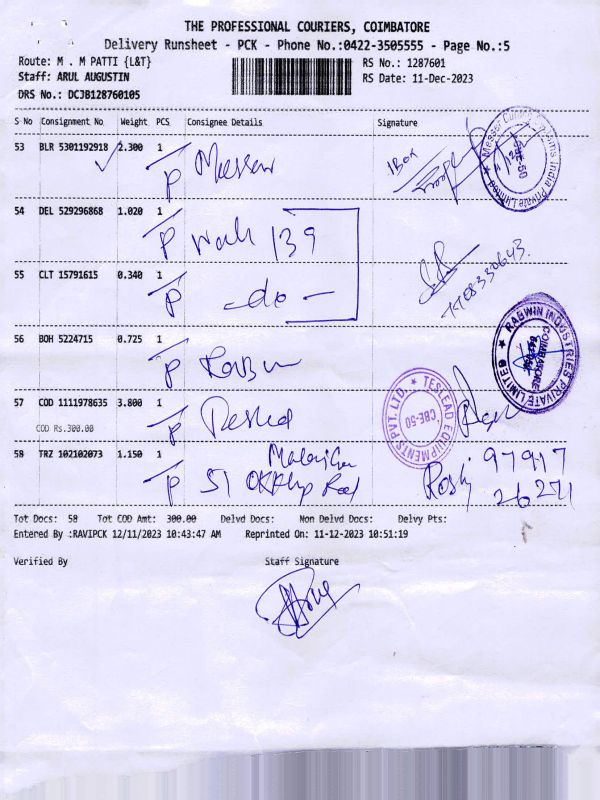 THE PROFESSIONAL COURIERS, COIMBATORE
Delivery Runsheet - PCK - Phone No.:0422-3505555 - Page No.:5
Route: M . M PATTI {L&T}
RS No.: 1287601
Staff: ARUL AUGUSTIN
RS Date: 11-Dec-2023
DRS No.: DCJB128760105
S No Consignment No Weight PCS Consignee Details Signature
53 BLR 5301192918 2.300 1
P Messer
1 Box
Messer Cutting Systems India Private Limited
54 DEL 529296868 1.020 1
P walk 139
55 CLT 15791615 0.340 1
P -do-
56 BOH 5224715 0.725 1
P
RABWIN INDUSTRIES PRIVATE LIMITED
COIMBATORE
57 COD 1111978635 3.800 1
COD Rs.300.00
P
TESLEAD EQUIPMENTS PVT. LTD.
CBE-50
58 TRZ 102102073 1.150 1
P 51
97917
26271
Tot Docs: 58 Tot COD Amt: 300.00 Delvd Docs: Non Delvd Docs: Delvy Pts:
Entered By :RAVIPCK 12/11/2023 10:43:47 AM Reprinted On: 11-12-2023 10:51:19
Verified By Staff Signature